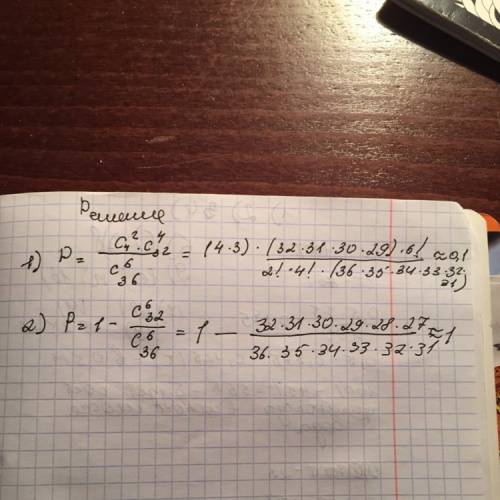 Решение
1) P = \frac{C_4^2 \cdot C_{32}^4}{C_{36}^6} = \frac{(4 \cdot 3) \cdot (32 \cdot 31 \cdot 30 \cdot 29) \cdot 6!}{2! \cdot 4! \cdot (36 \cdot 35 \cdot 34 \cdot 33 \cdot 32 \cdot 31)} ≈ 0,1
2) P = 1 - \frac{C_{32}^6}{C_{36}^6} = 1 - \frac{32 \cdot 31 \cdot 30 \cdot 29 \cdot 28 \cdot 27}{36 \cdot 35 \cdot 34 \cdot 33 \cdot 32 \cdot 31} ≈ 1